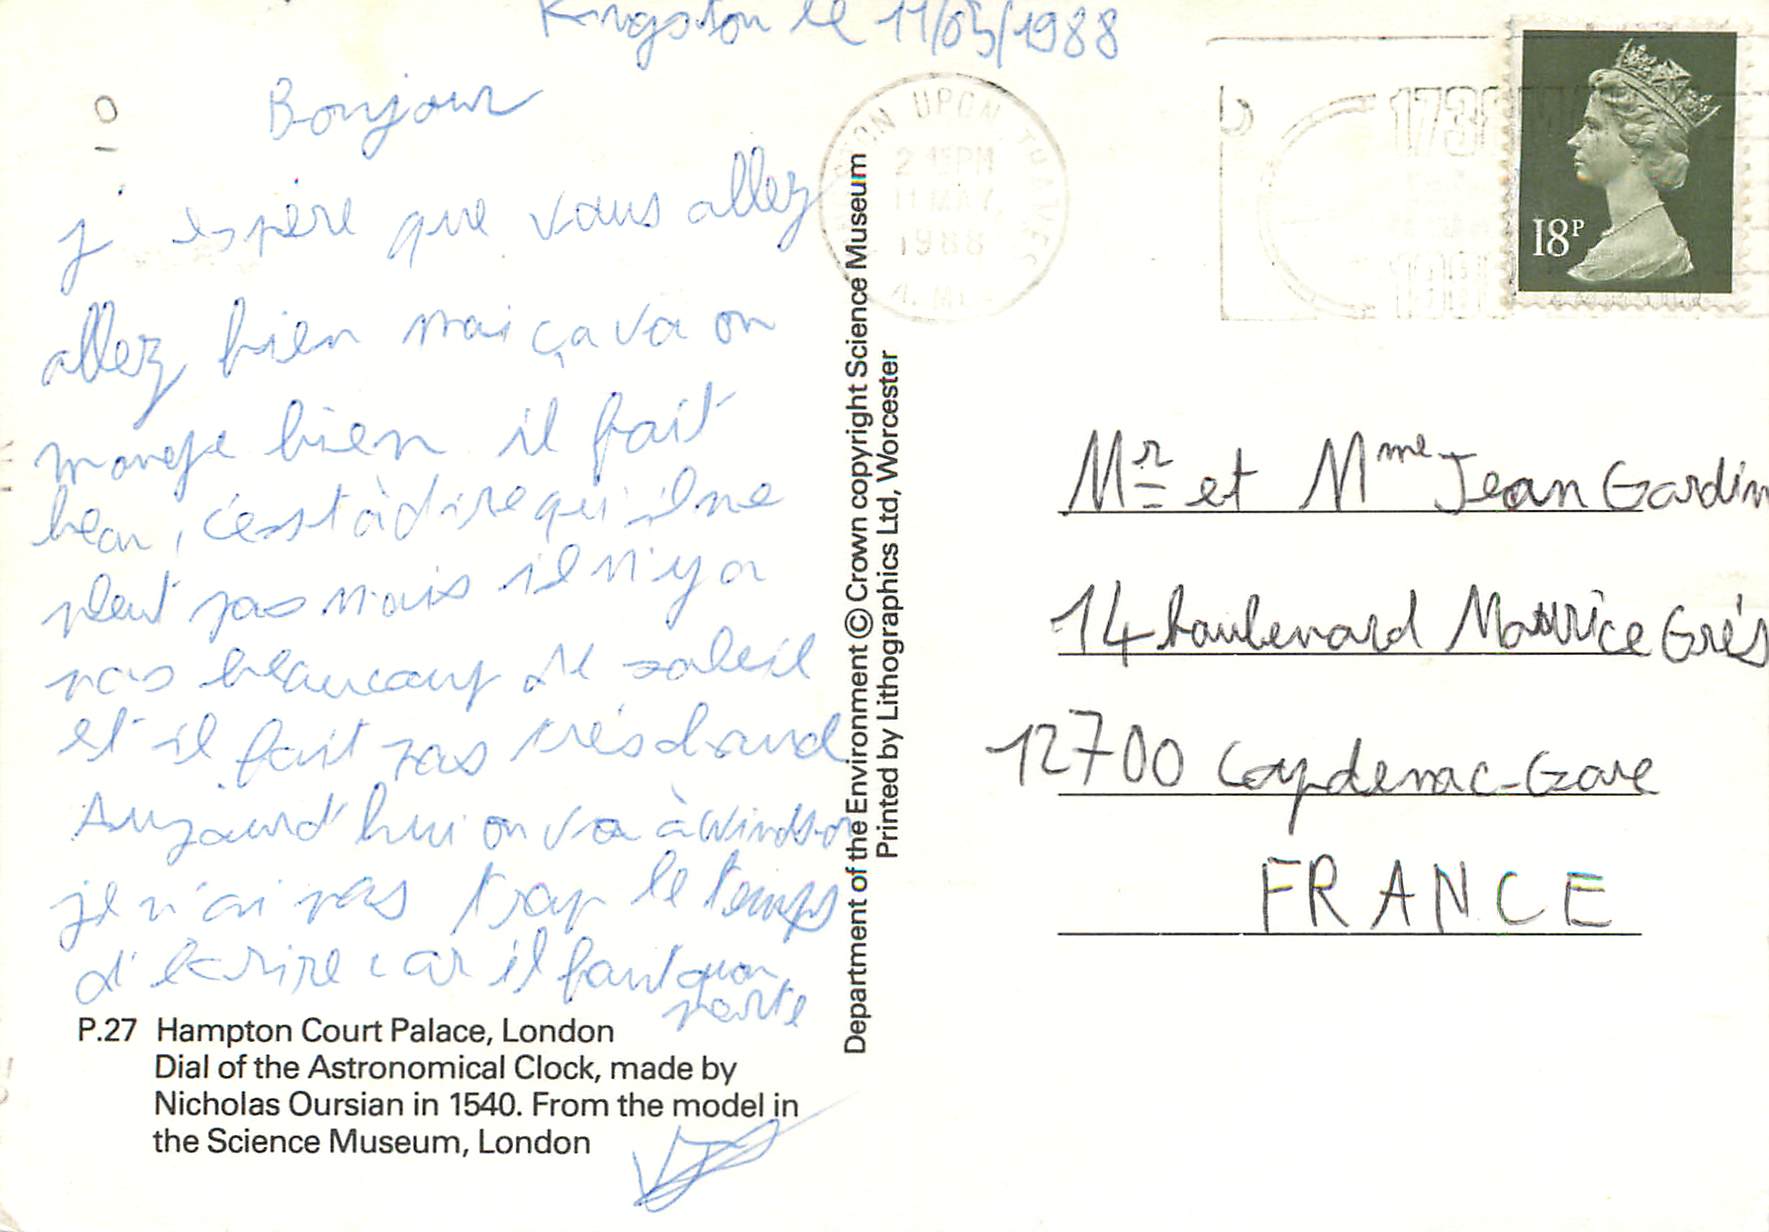 Kingston le 11/05/1988
Bonjour
j'espère que vous allez
allez bien moi ça va on
mange bien il fait
beau, c'est à dire qu'il ne
pleut pas mais il n'y a
pas beaucoup de soleil
et il fait pas très chaud
Aujourd'hui on va à Windsor
je n'ai pas trop le temps
d'écrire car il faut quon
parte
P.27 Hampton Court Palace, London
Dial of the Astronomical Clock, made by
Nicholas Oursian in 1540. From the model in
the Science Museum, London
Department of the Environment © Crown copyright Science Museum
Printed by Lithographics Ltd, Worcester
UPON THAMES
2 15PM
11 MAY
1988
18P
Mr et Mme Jean Gardin
14 boulevard Maurice Grés
12700 Capdenac-Gare
FRANCE